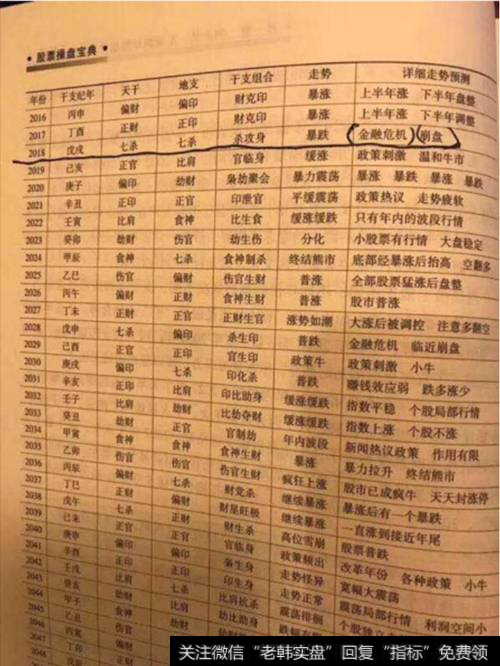 股票操盘宝典
年份 干支纪年 天干 地支 干支组合 走势 详细走势预测
2016 丙申 偏财 偏印 财克印 暴涨 上半年涨 下半年盘整
2017 丁酉 正财 正印 财克印 暴涨 上半年涨 下半年调整
2018 戊戌 七杀 七杀 杀攻身 暴跌 金融危机 崩盘
2019 己亥 正官 比肩 官临身 缓涨 政策刺激 温和牛市
2020 庚子 偏印 劫财 枭劫聚会 暴力震荡 暴涨 暴跌 暴涨 暴跌
2021 辛丑 正印 正官 印泄官 平缓震荡 政策热议 走势疲软
2022 壬寅 比肩 食神 比生食 缓涨缓跌 只有年内的波段行情
2023 癸卯 劫财 伤官 劫生伤 分化 小股票有行情 大盘稳定
2024 甲辰 食神 七杀 食神制杀 终结熊市 底部经暴涨后抬高 空翻多
2025 乙巳 伤官 偏财 伤官生财 普涨 全部股票猛涨后盘整
2026 丙午 偏财 正财 食神生财 普涨 股市普涨
2027 丁未 正财 正官 正财生官 涨势如潮 大涨后被调控 注意多翻空
2028 戊申 七杀 偏印 杀生印 普跌 金融危机 临近崩盘
2029 己酉 正官 正印 官生印 政策牛 政策刺激 小牛
2030 庚戌 偏印 七杀 印化杀 普跌 赚钱效应弱 跌多涨少
2031 辛亥 正印 比肩 印比助身 缓涨缓跌 指数平稳 个股局部行情
2032 壬子 比肩 劫财 比劫夺财 缓涨缓跌 指数上涨 个股不涨
2033 癸丑 劫财 正官 官制劫 年内波段 新闻热议政策 作用有限
2034 甲寅 食神 食神 食神生财 暴涨 暴力拉升 终结熊市
2035 乙卯 伤官 伤官 伤官生财 疯狂上涨 股市已成疯牛 天天封涨停
2036 丙辰 偏财 七杀 财党杀 继续暴涨 暴涨后有一个暴跌
2037 丁巳 正财 偏财 财星旺极 继续暴涨 一直涨到接近年尾
2038 戊午 七杀 正财 财生杀 高位雪崩 股票普跌
2039 己未 正官 正官 官临身 政策频出 改革年份 各种政策 小牛
2040 庚申 偏印 偏印 走势怪异 宽幅大震荡
2041 辛酉 正印 正印 走势正常
2042 壬戌 比肩 七杀 震荡徘徊
2043 癸亥 劫财 比肩
关注微信“老韩实盘”回复“指标”免费领